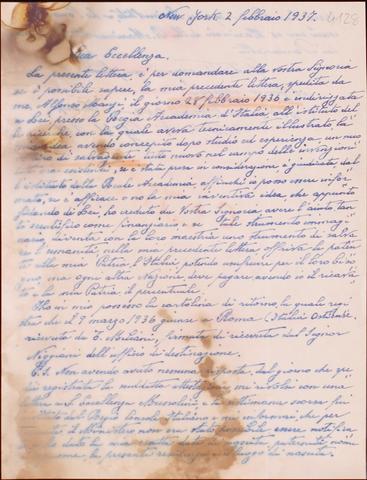 New York 2 febbraio 1937.
4128
Eccellenza.
La presente lettera, è per domandare alla vostra Signoria
se è possibile sapere, la mia precedente lettera, spedita da
me Alfonso il giorno 28 febbraio 1936 e indirizzata
a Lei, presso la Reggia Accademia d'Italia, all'istituto del
le ricerche, con la quale avevo tecnicamente illustrato, la
idea, avendo concepito dopo studio ed esperienza, un nuo
di salvataggio nuovo nel campo delle invenzioni
esistenti, se è stata presa in considerazione, e giudicata, dal
l'istituto della Reale Accademia, affinchè io possa essere infor
mato, se è efficace o no la mia inventiva idea, che appunto
fidando di Lei, ho creduto da Vostra Signoria, avere l'aiuto tan
to scientifico come finanziario e se tale strumento immagi
nario, diventa con la loro maestria uno strumento di salva
re l'umanità, nella mia precedente lettera offrivo la paten
te alla mia Patria, l'Italia potendo usufruire per il loro biso
gno, ma ogni altra Nazione, deve pagare, avendo io il ricavato
e la mia Patria il percentuale.
Ho in mio possesso la cartolina di ritorno, la quale regi
stra che il 7 marzo 1936 giunse - Roma
ricevuta da E. firmata di ricevuta dal Signor
dell'officio di destinazione.
Non avendo avuto nessuna risposta, dal giorno che qui
registrata la suddetta mi rivolsi con una
lettera a S. Eccellenza Mussolini, e la settimana scorsa fui
dal Reggio Console Italiano, e mi informai che per
il Ministero non era stato possibile avere notifica
data la mia esatta data di nascita, paternità, nome
come la presente e luogo di nascita.